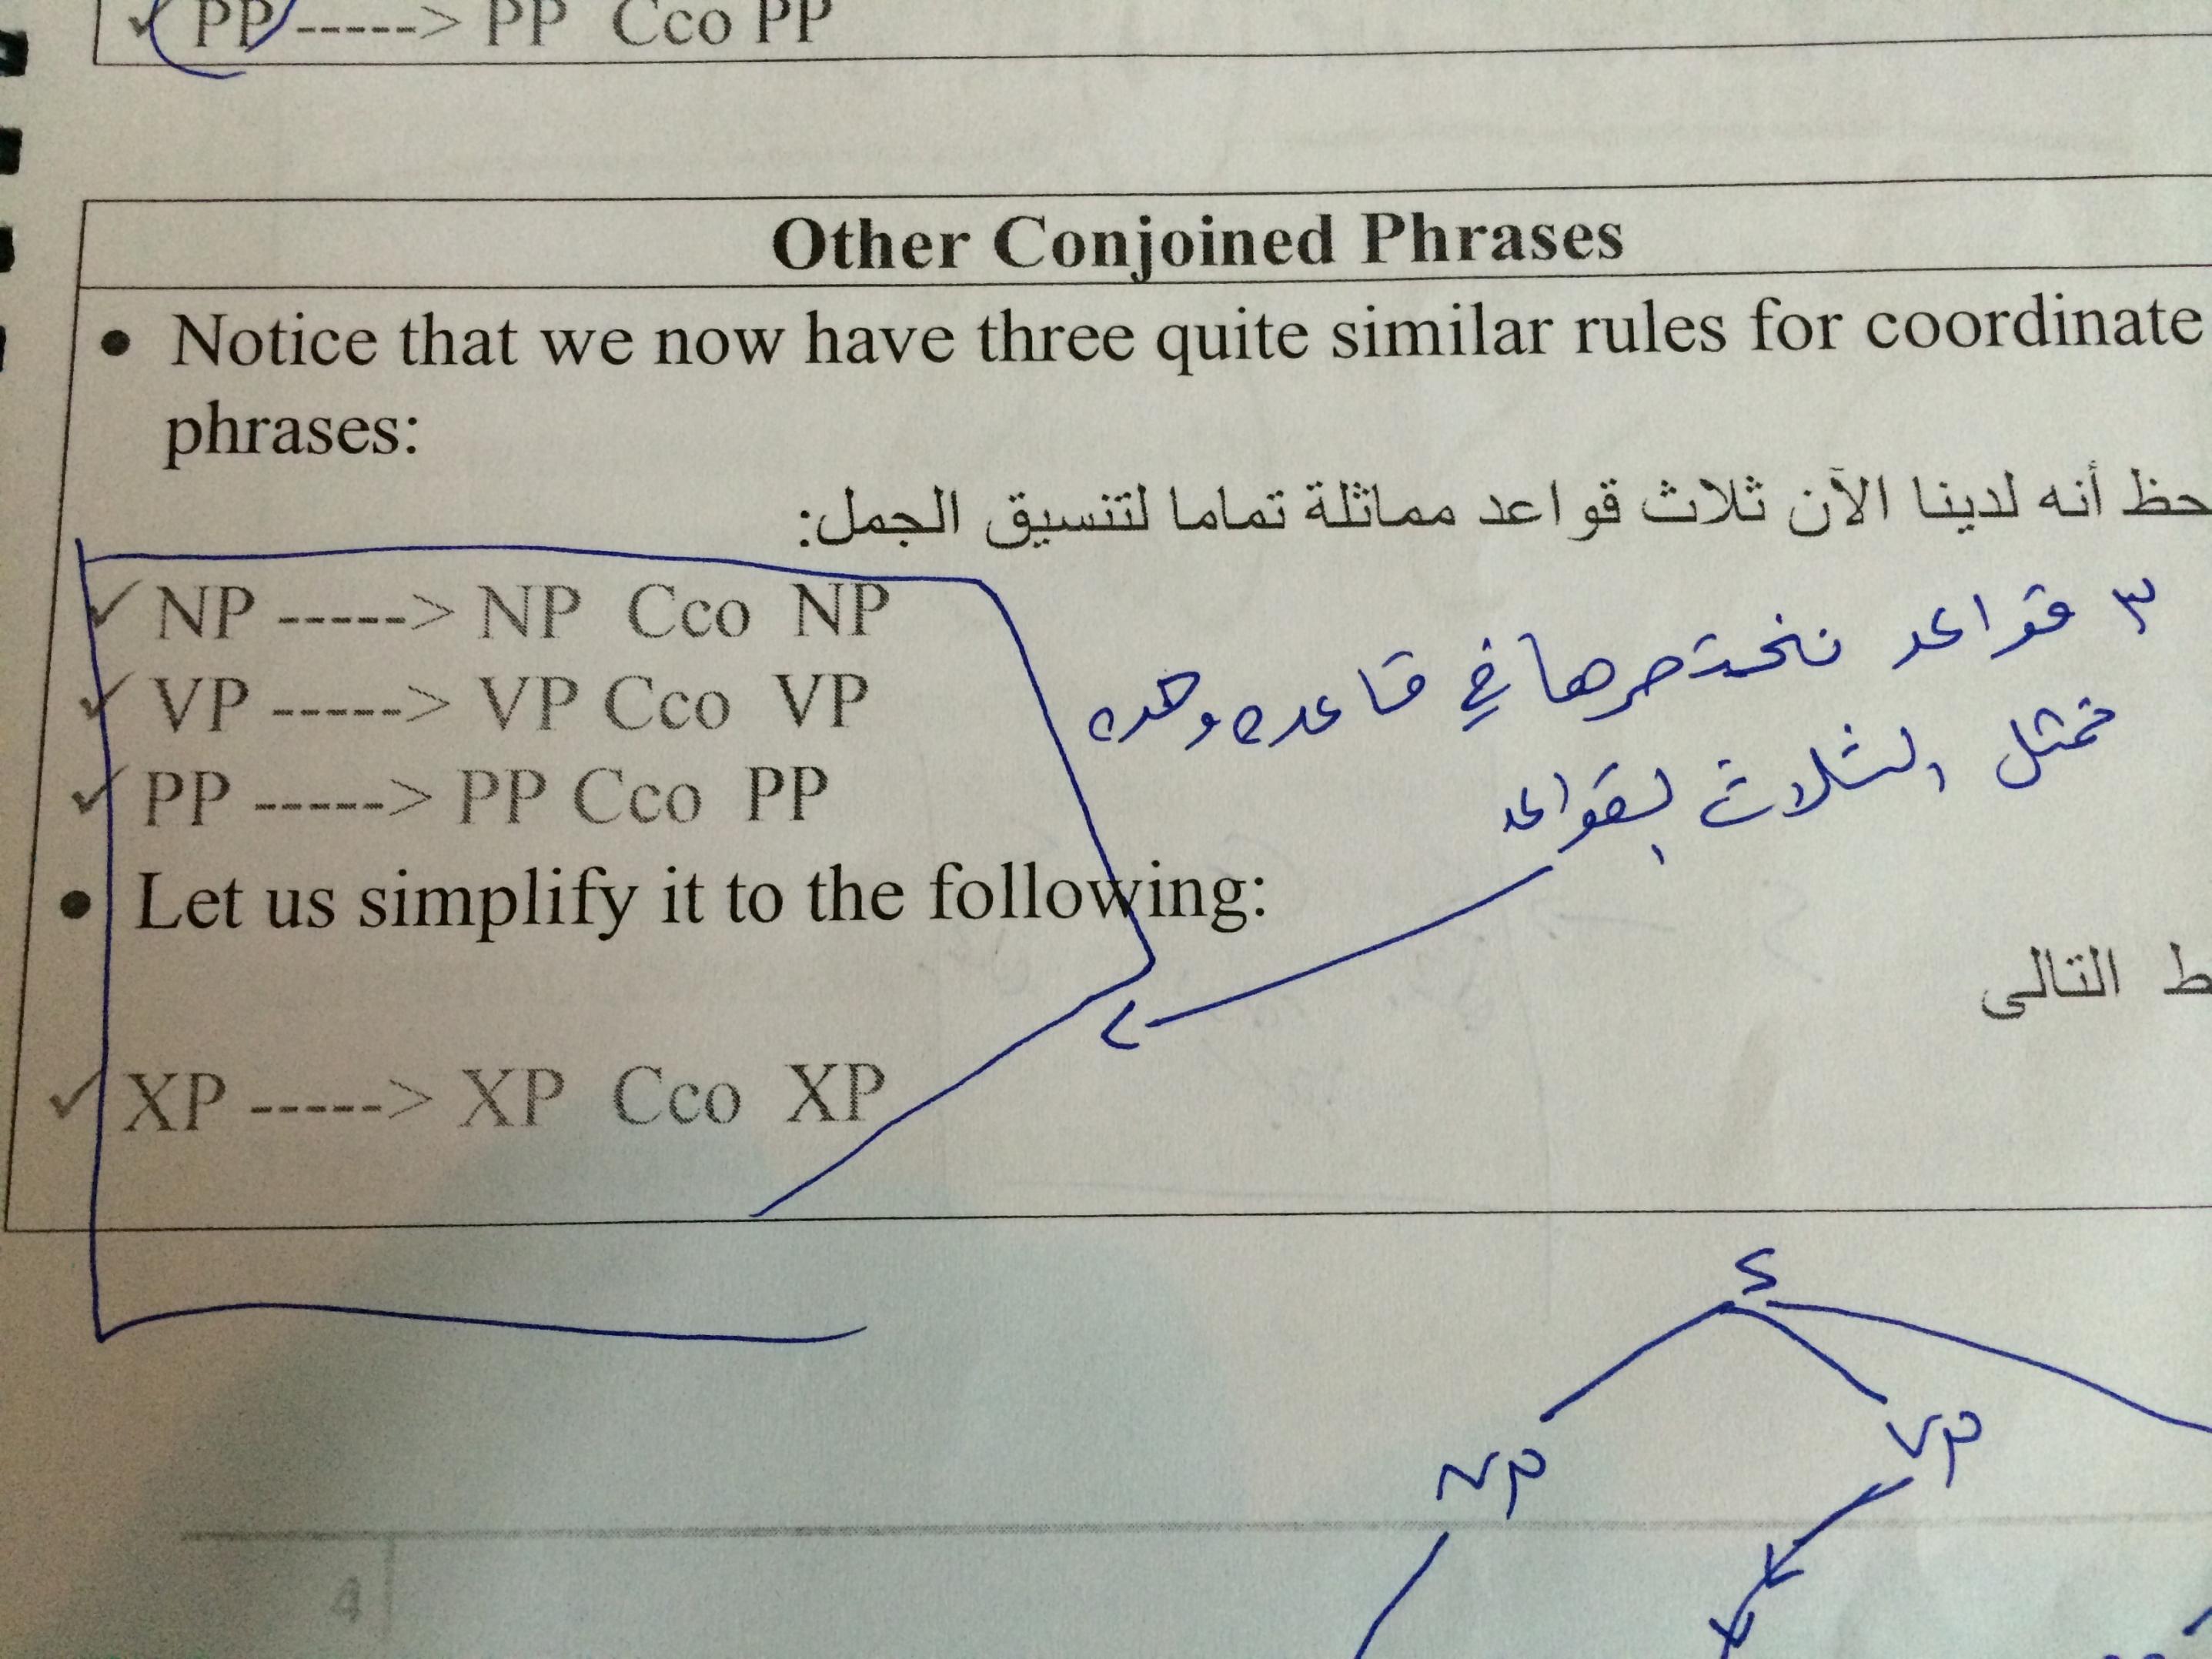 ✓ PP -----> PP Cco PP
Other Conjoined Phrases
• Notice that we now have three quite similar rules for coordinate
phrases:
حظ أنه لدينا الآن ثلاث قواعد مماثلة تماما لتنسيق الجمل:
✓ NP -----> NP Cco NP
٣ قواعد نختصرها في قاعده وحده
✓ VP -----> VP Cco VP
تمثل الثلاث القواعد
✓ PP -----> PP Cco PP
• Let us simplify it to the following:
ط التالى
✓ XP -----> XP Cco XP
S
NP VP
4